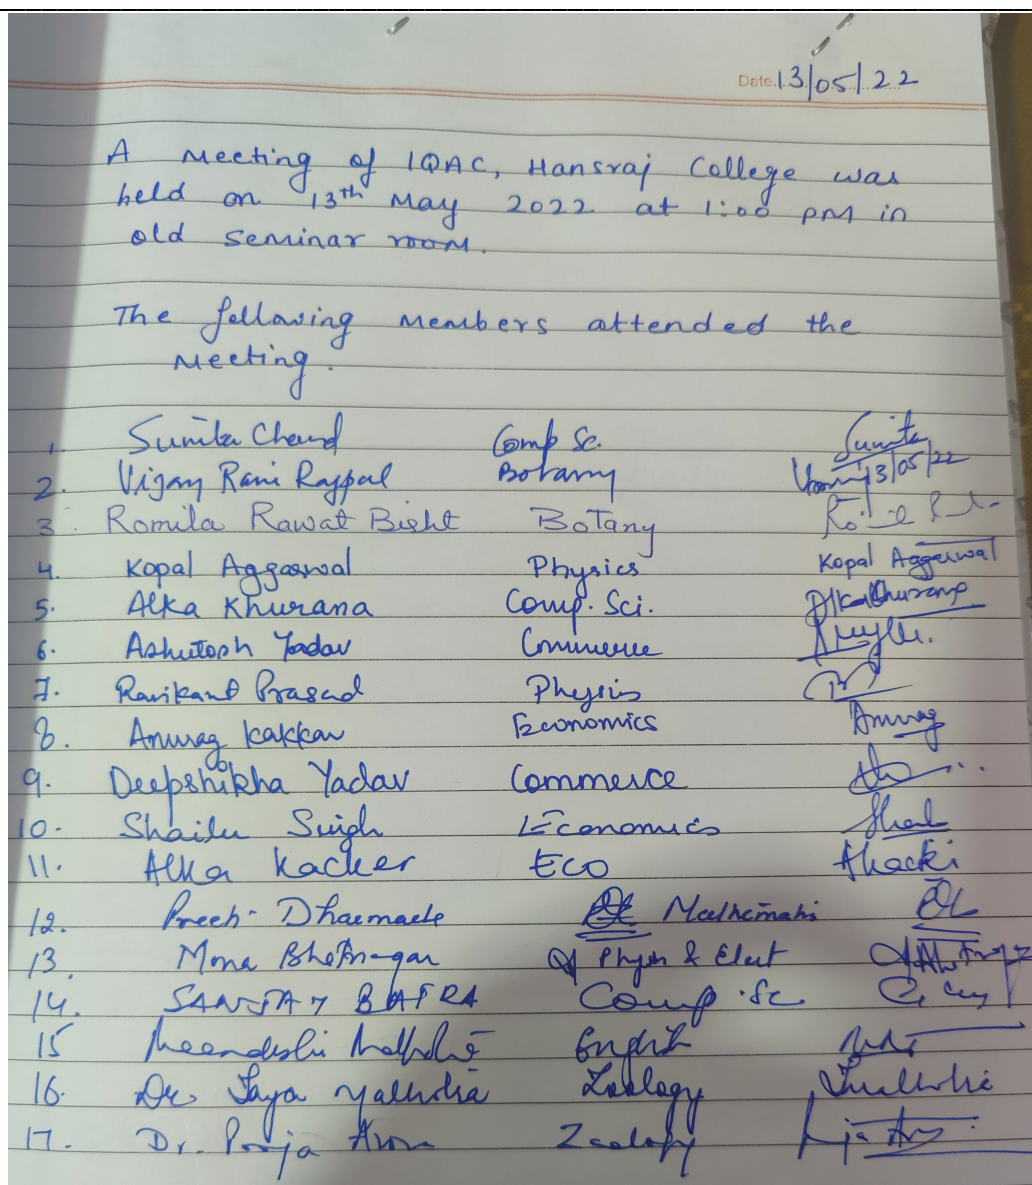 Date. 13/05/22
A Meeting of IQAC, Hansraj College was
held on 13th May 2022 at 1:00 PM in
old seminar room.
The following members attended the
Meeting.
1. Sunita Chand Comp Sc. Sunita
2. Vijay Rani Rajpal Botany 13/05/22
3. Romila Rawat Bisht BoTany
4. Kopal Aggarwal Physics Kopal Aggarwal
5. Alka Khurana Comp. Sci. Alka Khurana
6. Ashutosh Yadav Commerce
7. Ravikant Prasad Physics
8. Anurag Kakkar Economics Anurag
9. Deepshikha Yadav Commerce
10. Shailu Singh Economics
11. Alka Kacker ECO AKacker
12. Preeti Dharmarha Mathematics
13. Mona Bhatnagar Physics & Elect
14. SANJAY BATRA Comp. Sc
15 Meenakshi Malhotra English
16. Dr. Jaya Malhotra Zoology JMalhotra
17. Dr. Pooja Arora Zoology